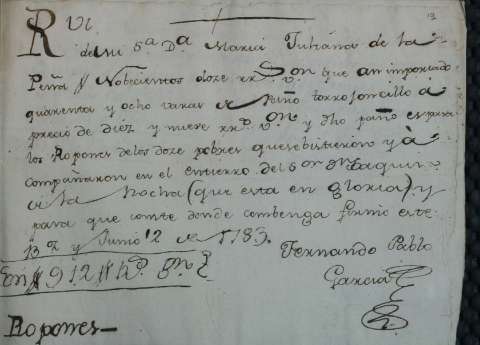 13
R.vi
de mi Sa Da Maria Juliana de la
Peña Nobecientos doze rrs vn Son que an importado
quarenta y ocho varas de Paño torrejoncillo â
precio de diez y nueve rrs vn y dho paño es para
los Ropones de los doze pobres que se bistieron y â
compañaron en el entierro del Sor Dn Joaquin
de la Rocha (que esta en gloria) y
para que conste donde combenga firmo este
y Junio 12 de 1783.
Fernando Pablo
Garcia
Son 912 rrs vn
Ropones